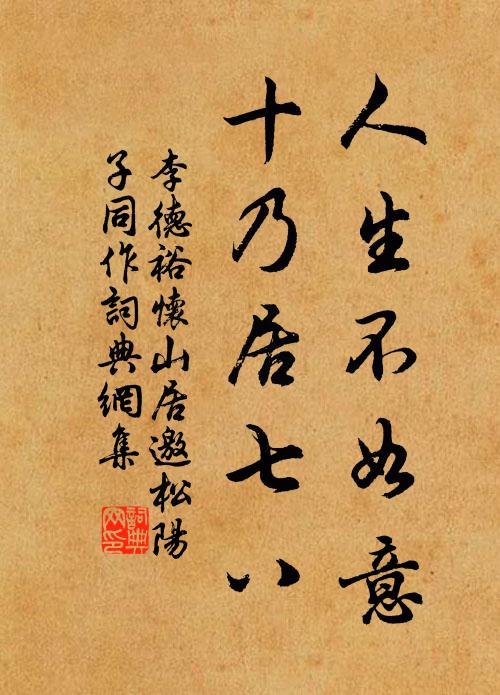 人生不如意
十乃居七八
李德裕懷山居邀松陽
子同作詞典網集
詞典
网印